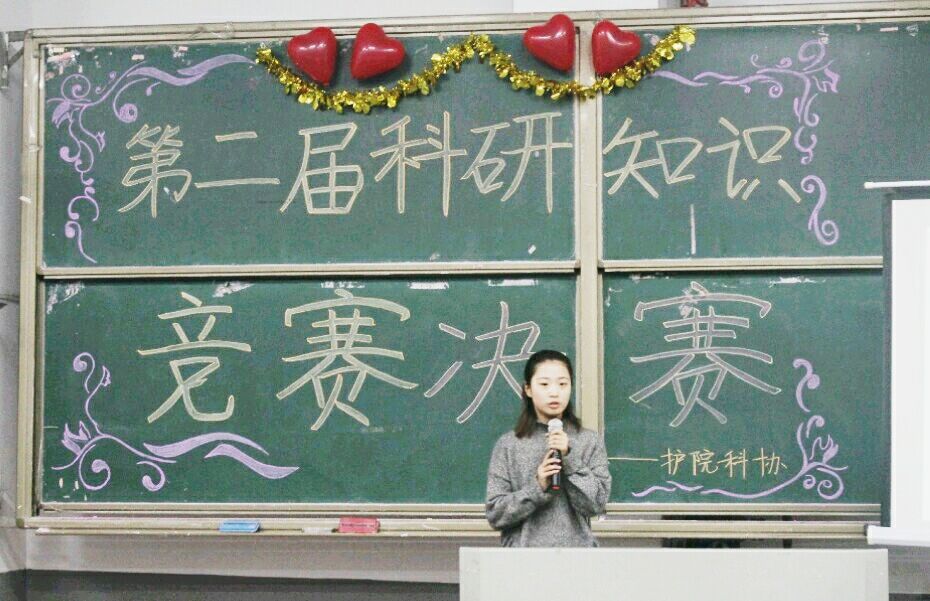 第二届科研知识
竞赛决赛
——护院科协